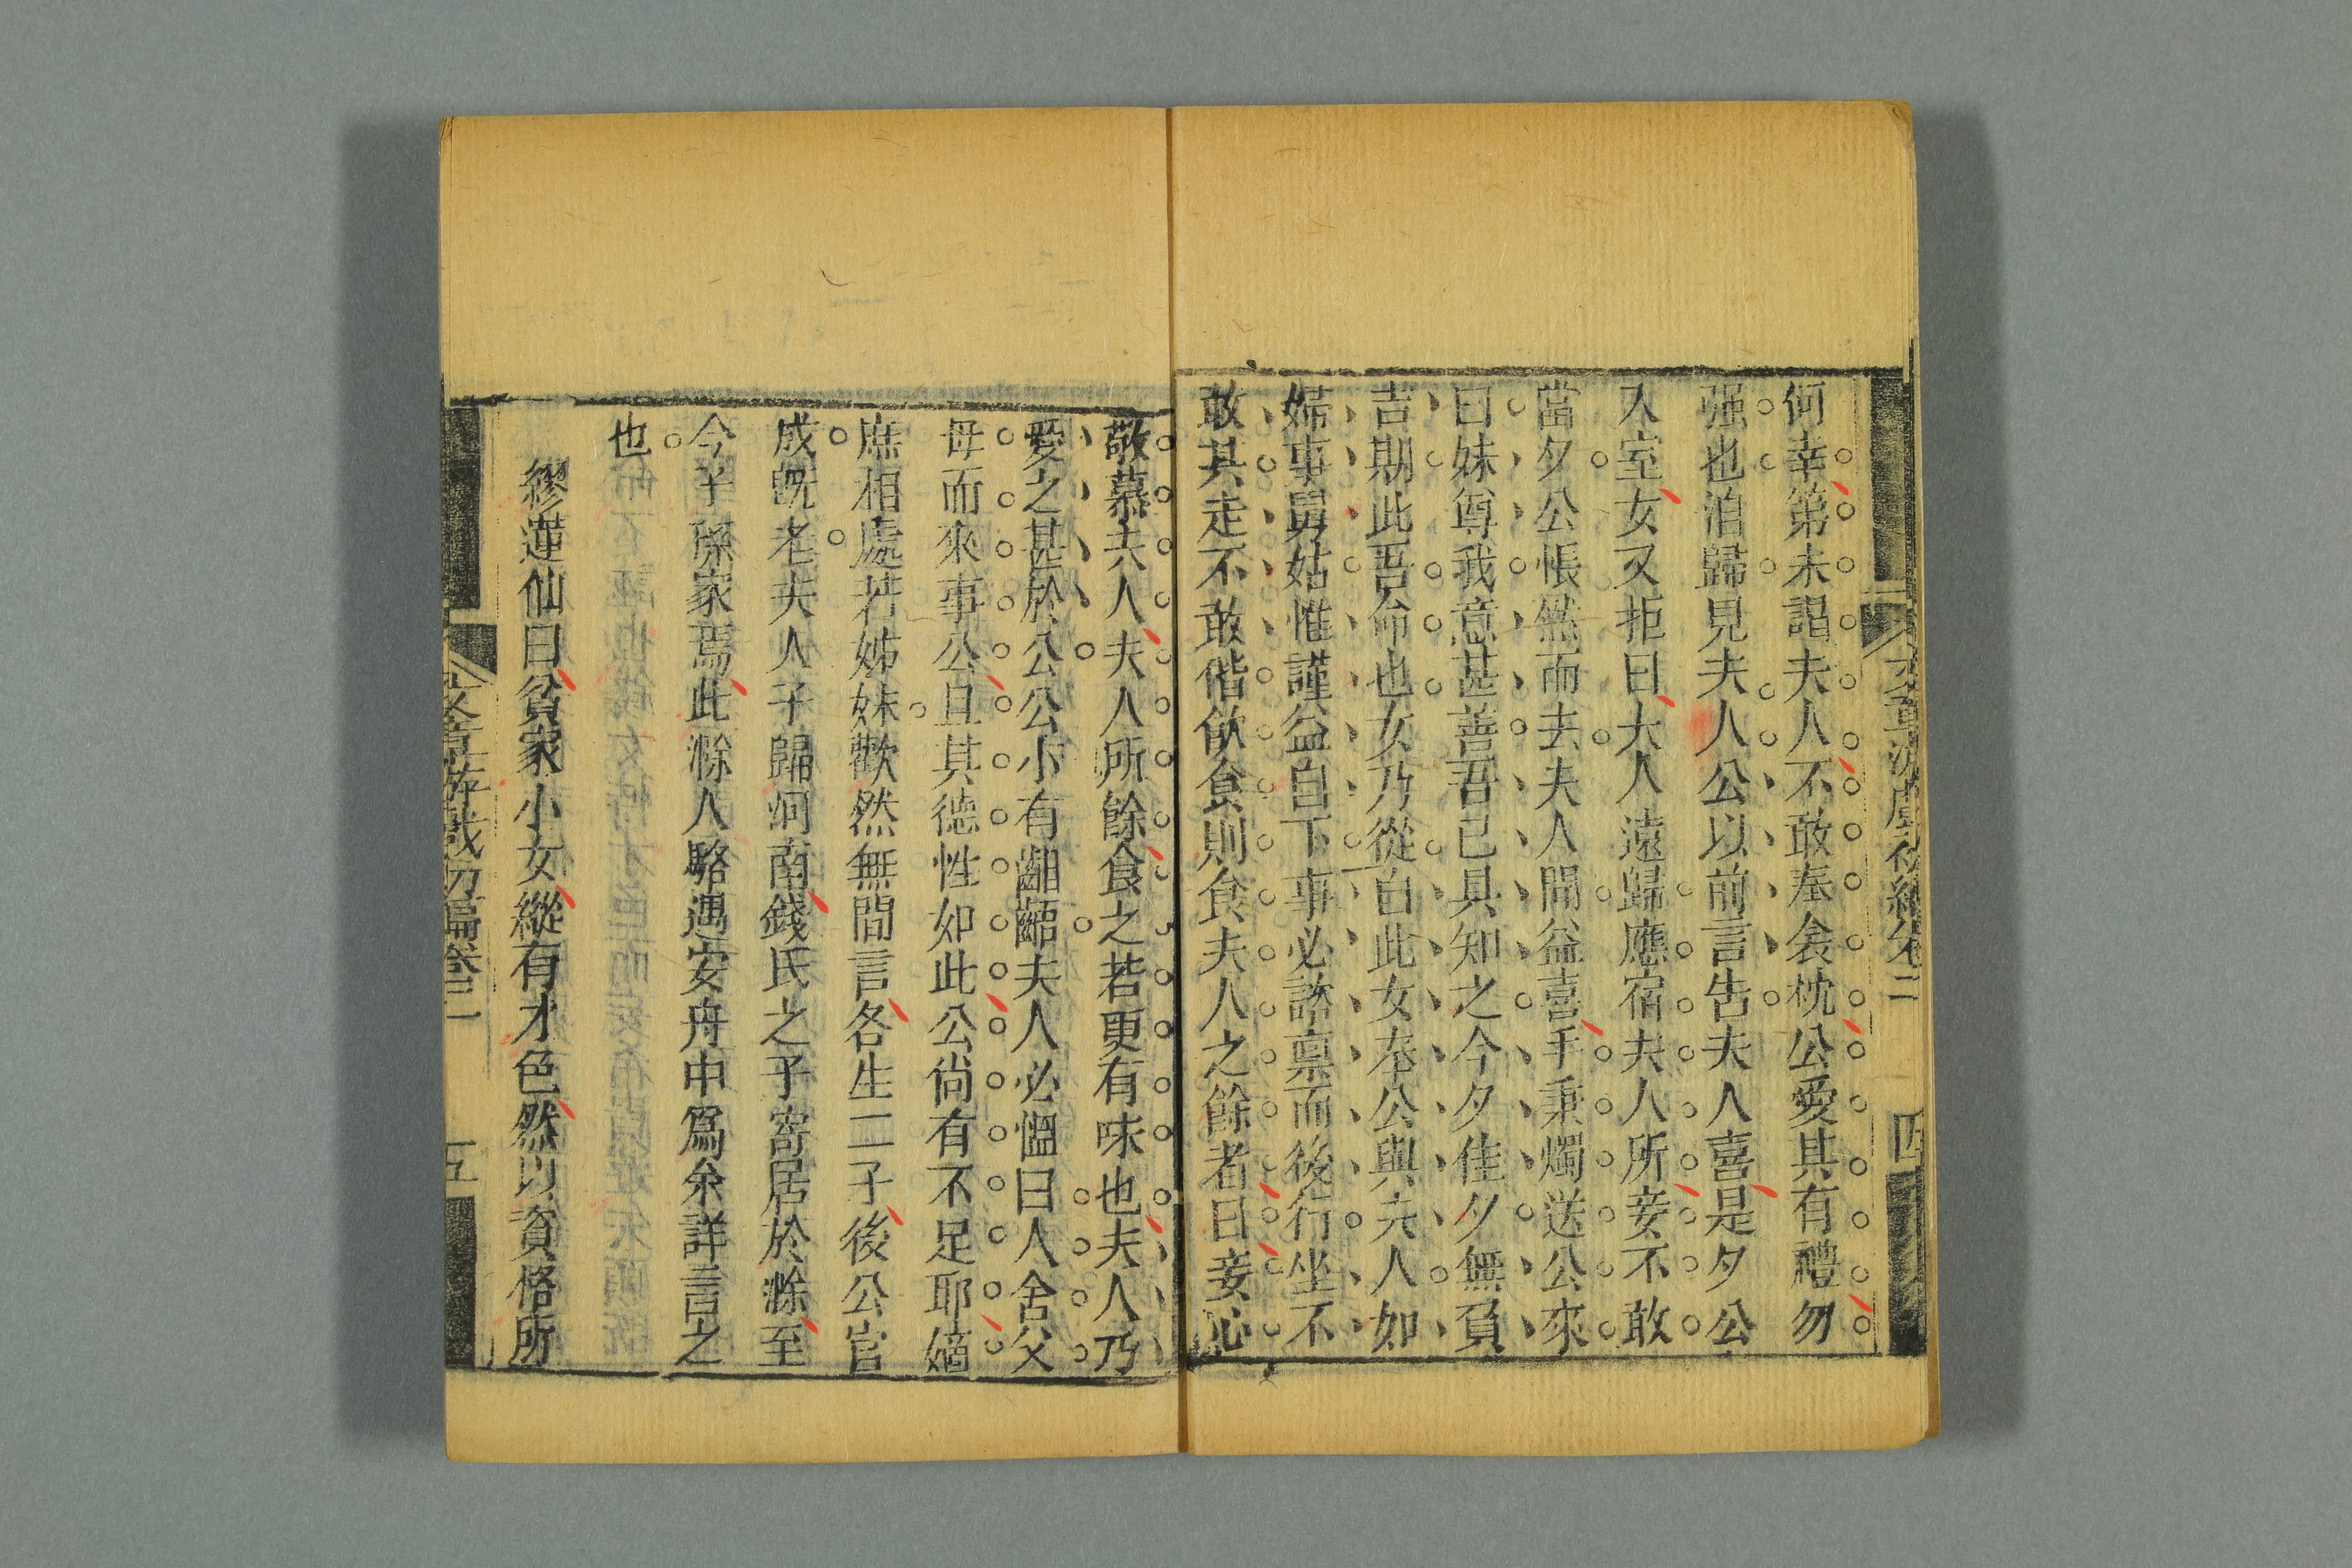 何幸第未謁夫人不敢奉衾枕公愛其有禮勿
强也洎歸見夫人公以前言告夫人喜是夕公
入室女又拒曰大人遠歸應宿夫人所妾不敢
當夕公悵然而去夫人聞益喜手秉燭送公來
曰妹尊我意甚善吾已具知之今夕佳夕無負
吉期此吾命也女乃從自此女奉公與夫人如
婦事舅姑惟謹益自下事必諮禀而後行坐不
敢其走不敢偕飲食則食夫人之餘者曰妾心
敬慕夫人夫人所餘食之若更有味也夫人乃
愛之甚於公公小有齟齬夫人必慍曰人舍父
母而來事公且其德性如此公尙有不足耶嫡
庶相處若姊妹歡然無間言各生二子後公官
成旣老夫人子歸河南錢氏之子寄居於滁至
今羊孫家焉此滁人駱遇安舟中爲余詳言之
也
繆蓮仙曰貧家小女縱有才色然以資格所
文章游戲初編卷二 五
四